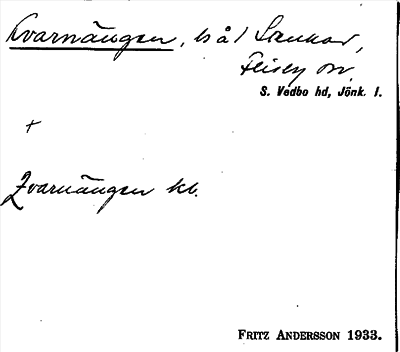 Kvarnängen, bå/ Lankar,
Flisby sn.
S. Vedbo hd, Jönk. l.
+
Qvarnängen kb.
FRITZ ANDERSSON 1933.